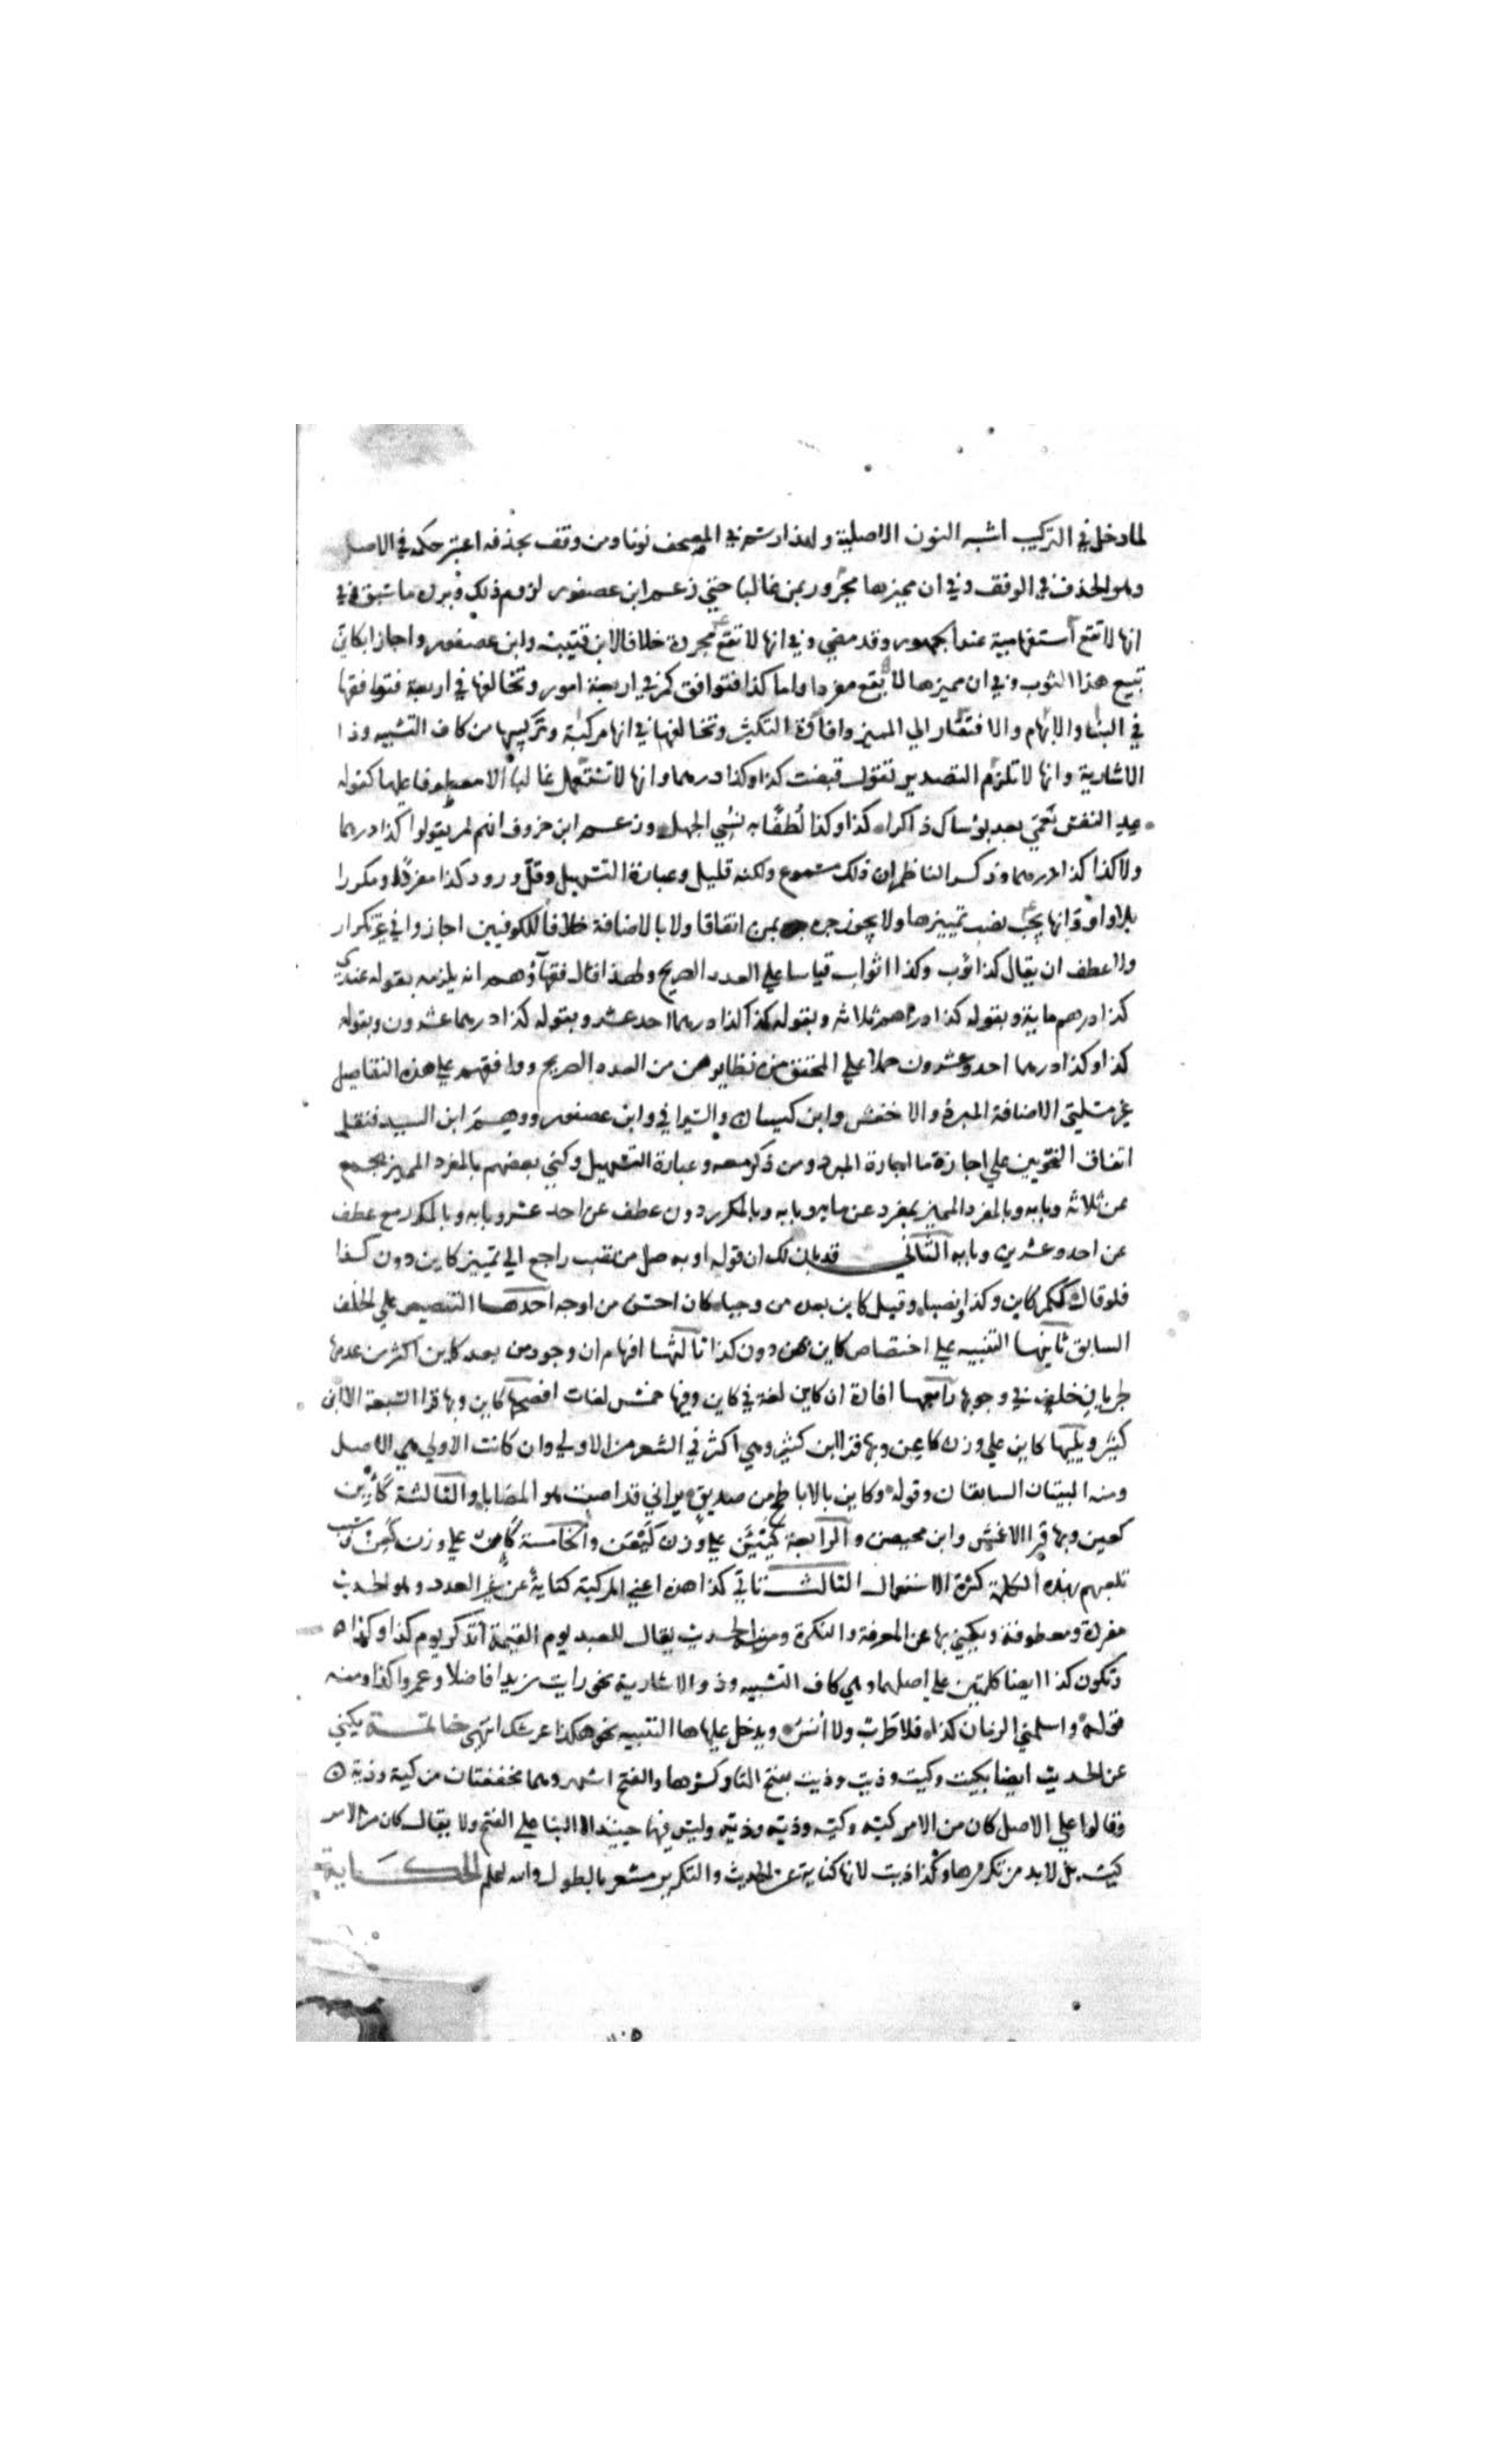 لما دخل في التركيب اشبه النون الاصلية ولهذا رسم في المصحف نونا ومن وقف بحذفه اعتبر حكمه في الاصل
وهو الحذف في الوقف وفي ان مميزها مجرور بمن غالبا حتي زعم ابن عصفور لزوم ذلك ويرده ما سبق وفي
انها لا تقع استفهامية عند الجمهور وقد مضي وفي انها لا تقع مجرورة خلافا لابن قتيبة وابن عصفور واجازا بكاين
تبيع هذا الثوب وفي ان مميزها لا يقع مفردا واما كذا فتوافق كم في اربعة امور وتخالفها في اربعة فتوافقها
في البنا والابهام والافتقار الي المميز وافادة التكثير وتخالفها في انها مركبة وتركيبها من كاف التشبيه وذا
الاشارية وانها لا تلزم التصدير تقول قبضت كذا وكذا درهما وانها لا تستعمل غالبا الا معطوفا عليها كقوله
عد النفس نعمي بعد بؤساك ذاكرا كذا وكذا لطفا به نسي الجهل وزعم ابن خروف انهم لم يقولوا كذا درهما
ولا كذا كذا درهما وذكر الناظم ان ذلك مسموع ولكنه قليل وعبارة التسهيل وقل ورود كذا مفردا ومكررا
بلا واو وانها يجب نصب تمييزها ولا يجوز جره بمن اتفاقا ولا بالاضافة خلافا للكوفيين اجازوا في غير تكرار
ولا عطف ان يقال كذا ثوب وكذا اثواب قياسا علي العدد الصريح ولهذا قال فقهاؤهم انه يلزمه بقوله عندي
كذا درهم ماية وبقوله كذا دراهم ثلاثه وبقوله كذا كذا درهما احد عشر وبقوله كذا درهما عشرون وبقوله
كذا وكذا درهما احد وعشرون حملا علي المحقق من نظايرهن من العدد الصريح ووافقهم علي هذه التفاصيل
غير مسلتي الاضافة المبرد والاخفش وابن كيسان والسيرافي وابن عصفور ووهم ابن السيد فنقل
اتفاق النحويين علي اجازة ما اجازه المبرد ومن ذكر معه وعبارة التسهيل وكني بعضهم بالمفرد المميز بجمع
عن ثلاثه وبابه وبالمفرد المميز بمفرد عن مايه وبابه وبالمكرر دون عطف عن احد عشر وبابه وبالمكرر مع عطف
عن احد وعشرين وبابه الثاني قد بان لك ان قوله او به صل من تصب راجع الي تمييز كاين دون كذا
فلو قال ككم كاين وكذا ونصبا وقيل كاين بعده من وجبا لكان احسن من اوجه احدها التنصيص علي الخلف
السابق ثانيها التنبيه علي اختصاص كاين بمن دون كذا ثالثها افهام ان وجود من بعد كاين اكثر من عدمها
لجريان خلف في وجوبها رابعها افادة ان كاين لغة في كاين وفيها خمس لغات افصحها كاين وبها قرا السبعة الا ابن
كثير ويليها كاين علي وزن كاعن وبها قرا ابن كثير وهي اكثر في الشعر من الاولي وان كانت الاولي هي الاصل
ومنه البيتان السابقان وقوله وكاين بالاباطح من صديق يراني قد اصبت هو المصابا والثالثة كأين
كعين وبها قرا الاعمش وابن محيصن والرابعة كيئن علي وزن كيعن والخامسة كأن علي وزن كعن وسبب
تلعبهم بهذه الكلمة كثرة الاستعمال الثالث تاتي كذا هذه اعني المركبة كناية عن غير العدد وهو الحديث
مفردة ومعطوفة ويكني بها عن المعرفة والنكرة ومنه الحديث يقال للعبد يوم القيمة أتذكر يوم كذا وكذا
وتكون كذا ايضا كلمتين علي اصلهما وهي كاف التشبيه وذا الاشارية نحو رايت زيدا فاضلا وعمروا كذا ومنه
قوله واسلمني الزمان كذا فلا طرب ولا أنس ويدخل عليها ها التنبيه نحو هكذا عرشك انتهي خاتمة يكني
عن الحديث ايضا بكيت وكيت وذيت وذيت بفتح التا وكسرها والفتح اشهر وهما مخففتان من كية وذية
وقالوا علي الاصل كان من الامر كيه وكيه وذيه وذيه وليس فيها حينيذ الا البنا علي الفتح ولا يقال كان من الامر
كيت بل لا بد من تكريرها وكذا ذيت لانها كناية عن الحديث والتكرير مشعر بالطول والله اعلم الحكاية